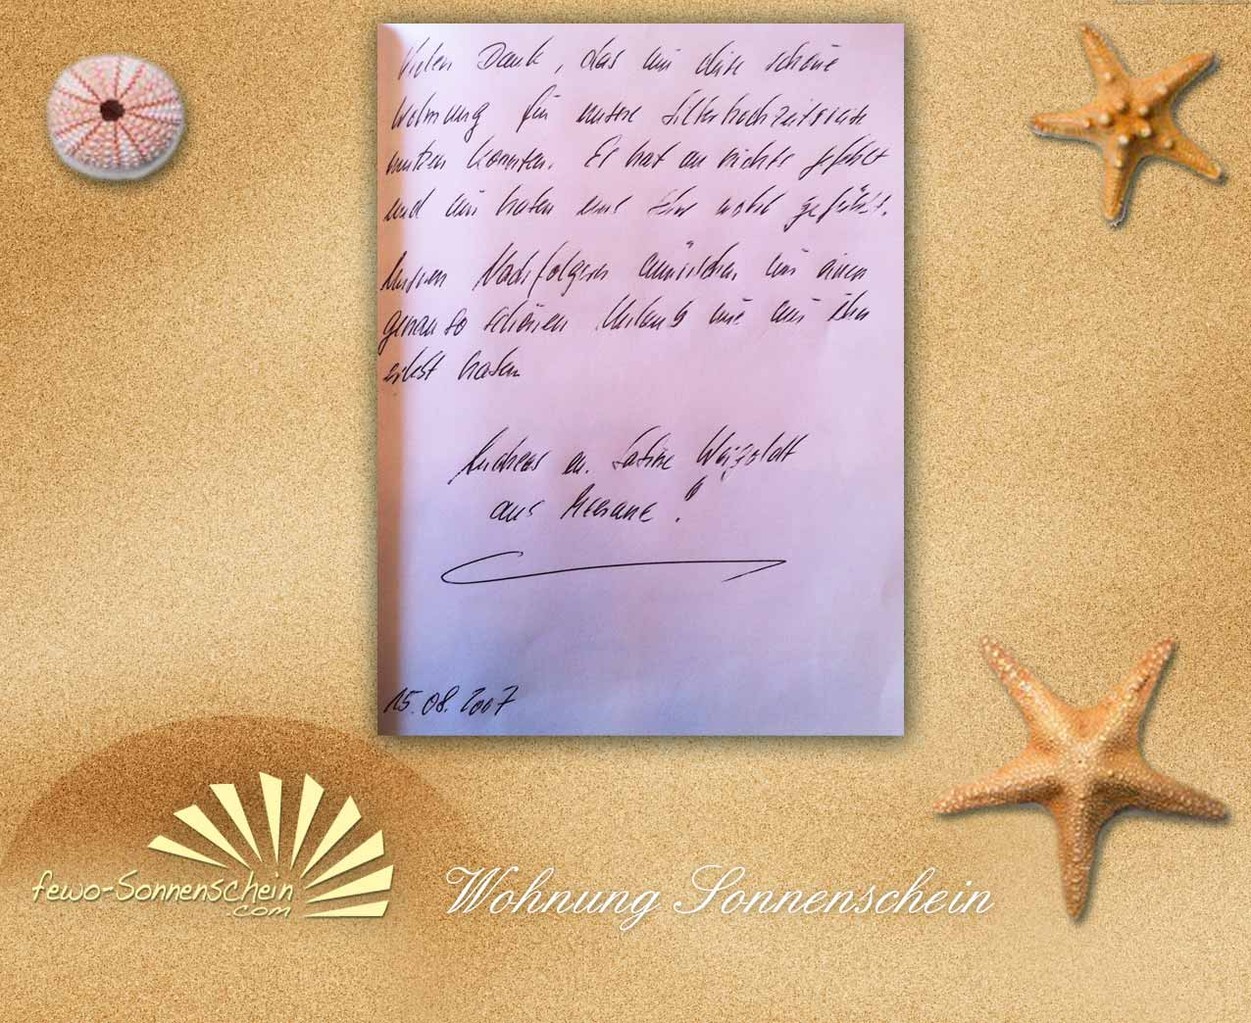 Vielen Dank, das wir diese schöne
Wohnung für unsere Silberhochzeitsreise
nutzen konnten. Es hat an nichts gefehlt
und wir haben uns sehr wohl gefühlt.
Unseren Nachfolgern wünschen wir einen
genau so schönen Urlaub wie wir ihn
selbst haben
Andreas u. Sabine
aus Meerane!
15.08.2007
fewo-Sonnenschein
.com
Wohnung Sonnenschein